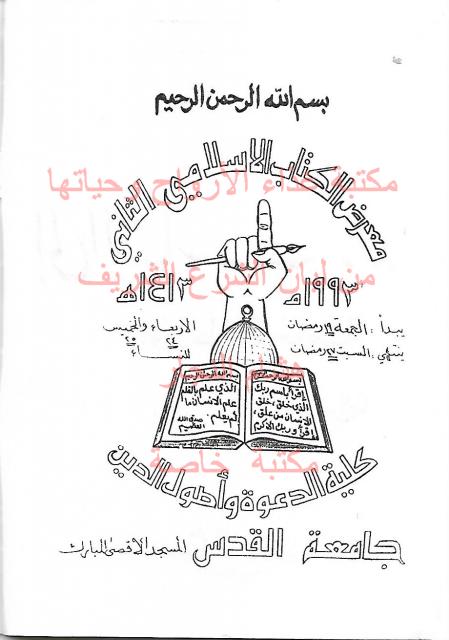 بسم الله الرحمن الرحيم
معرض الكتاب الإسلامي الثاني
مكتبة غذاء الارواح وحياتها
من لبان الشرع الشريف
١٩٩٣م
١٤١٣هـ
يبدأ: الجمعة ١٩ رمضان
ينتهي: السبت ٢٧ رمضان
الاربعاء والخميس
٢٤ ٢٥
للنساء
بسم الله الرحمن الرحيم
إقرأ باسم ربك
الذي خلق، خلق
الانسان من علق،
إقرأ وربك الأكرم
بسم الله الرحمن الرحيم
الذي علم بالقلم
علم الانسان ما
لم يعلم.
صدق الله
العظيم
مكتبة خاصة
كلية الدعوة وأصول الدين
جامعة القدس
المسجد الاقصى المبارك